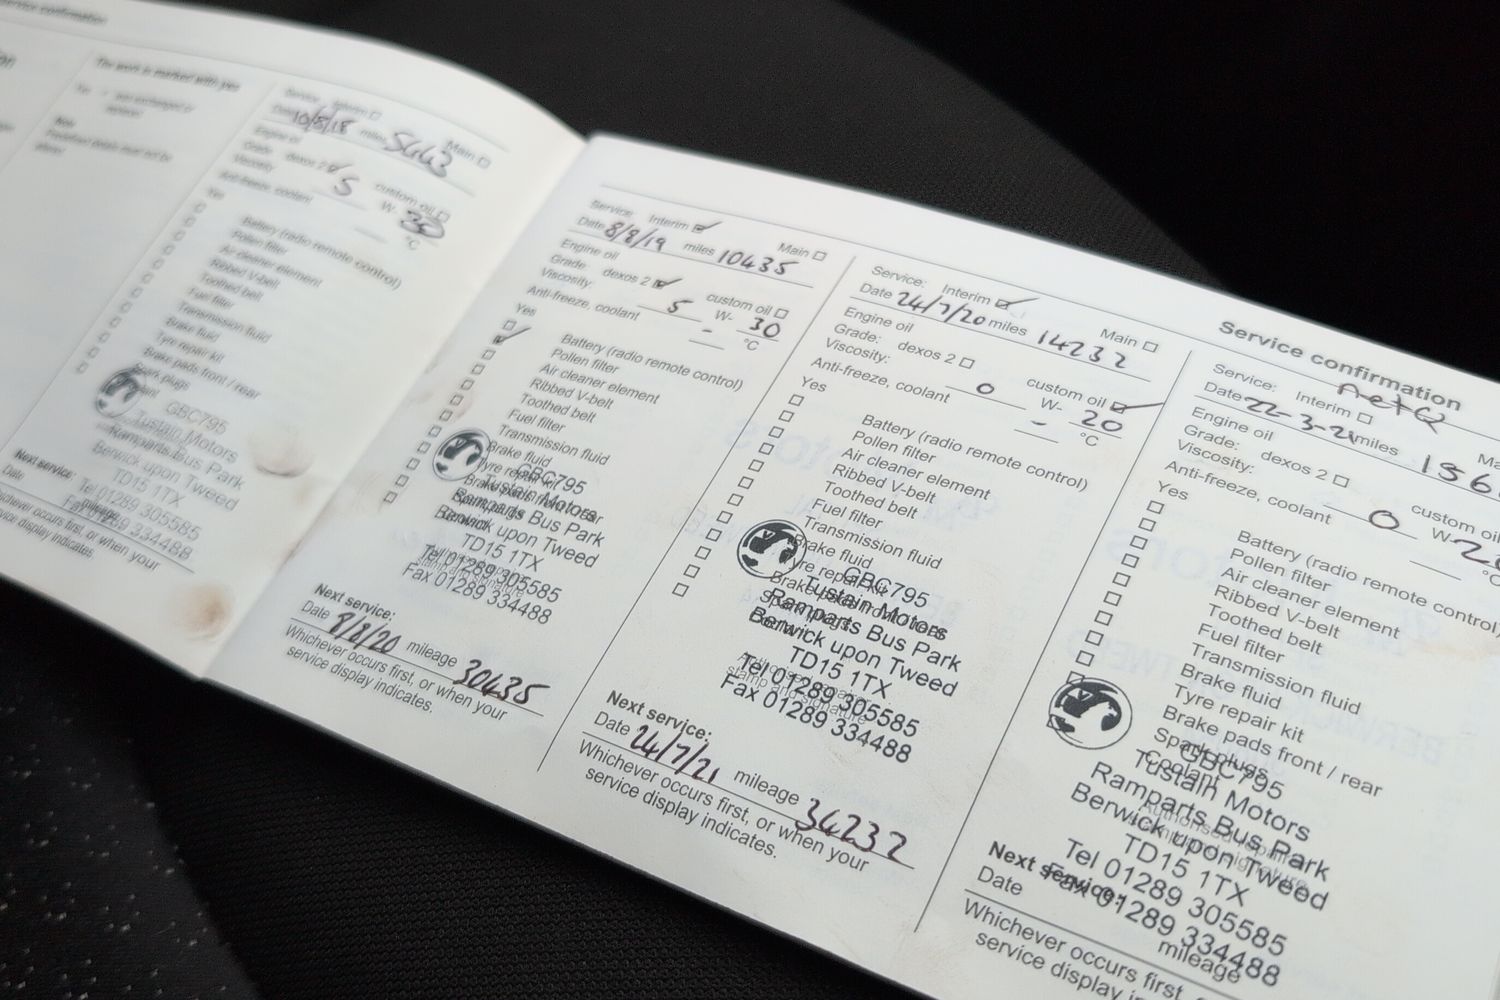 Service confirmation
The work is marked with yes
Yes = was exchanged or
Note
Service: Interim
Main
Date 10/8/18 miles 5443
Engine oil
Grade: dexos 2
custom oil
Viscosity: 5 W- 30
Anti-freeze, coolant °C
Yes
Battery (radio remote control)
Pollen filter
Air cleaner element
Ribbed V-belt
Toothed belt
Fuel filter
Transmission fluid
Brake fluid
Tyre repair kit
Brake pads front / rear
Spark plugs
GBC795
Tustain Motors
Ramparts Bus Park
Berwick upon Tweed
TD15 1TX
Tel 01289 305585
Fax 01289 334488
Next service:
Date mileage
Whichever occurs first, or when your
service display indicates.
Service: Interim Main
Date 8/8/19 miles 10435
Engine oil
Grade: dexos 2 custom oil
Viscosity: 5 W- 30
Anti-freeze, coolant - °C
Yes
Battery (radio remote control)
Pollen filter
Air cleaner element
Ribbed V-belt
Toothed belt
Fuel filter
Transmission fluid
Brake fluid
Tyre repair kit
GBC795
Tustain Motors
Ramparts Bus Park
Berwick upon Tweed
TD15 1TX
Tel 01289 305585
Fax 01289 334488
Next service:
Date 8/8/20 mileage 30435
Whichever occurs first, or when your
service display indicates.
Service: Interim Main
Date 24/7/20 miles 14232
Engine oil
Grade: dexos 2 custom oil
Viscosity: 0 W- 20
Anti-freeze, coolant - °C
Yes
Battery (radio remote control)
Pollen filter
Air cleaner element
Ribbed V-belt
Toothed belt
Fuel filter
Transmission fluid
Brake fluid
Tyre repair kit
GBC795
Tustain Motors
Ramparts Bus Park
Berwick upon Tweed
TD15 1TX
Tel 01289 305585
stamp and signature
Fax 01289 334488
Next service:
Date 24/7/21 mileage 34232
Whichever occurs first, or when your
service display indicates.
Service confirmation
Service: Interim
Date 22-3-21 miles 156
Engine oil
Grade: dexos 2 custom oil
Viscosity: 0 W- 2
Anti-freeze, coolant °C
Yes
Battery (radio remote control)
Pollen filter
Air cleaner element
Ribbed V-belt
Toothed belt
Fuel filter
Transmission fluid
Brake fluid
Tyre repair kit
Brake pads front / rear
Spark plugs
Coolant
GBC795
Tustain Motors
Ramparts Bus Park
Berwick upon Tweed
TD15 1TX
Tel 01289 305585
Fax 01289 334488
Next service:
Date mileage
Whichever occurs first,
service display in